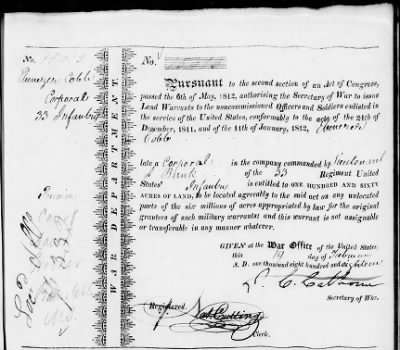 No.
Ebenezer Cobb
Corporal
33 Infantry
WAR DEPARTMENT
No.
Pursuant to the second section of an Act of Congress,
passed the 6th of May, 1812, authorising the Secretary of War to issue
Land Warrants to the noncommissioned Officers and Soldiers enlisted in
the service of the United States, conformably to the acts of the 24th of
December, 1811, and of the 11th of January, 1812, Ebenezer
Cobb
late a Corporal in the company commanded by Lieutenant
of the 33 Regiment United
States' Infantry is entitled to ONE HUNDRED AND SIXTY
ACRES OF LAND, to be located agreeably to the said act on any unlocated
parts of the six millions of acres appropriated by law for the original
grantees of such military warrants; and this warrant is not assignable
or transferable in any manner whatever.
GIVEN at the War Office of the United States,
this 19 day of February
A. D. one thousand eight hundred and eighteen
J. C. Calhoun
Secretary of War.
Registered.
Nat Cutting
Clerk.